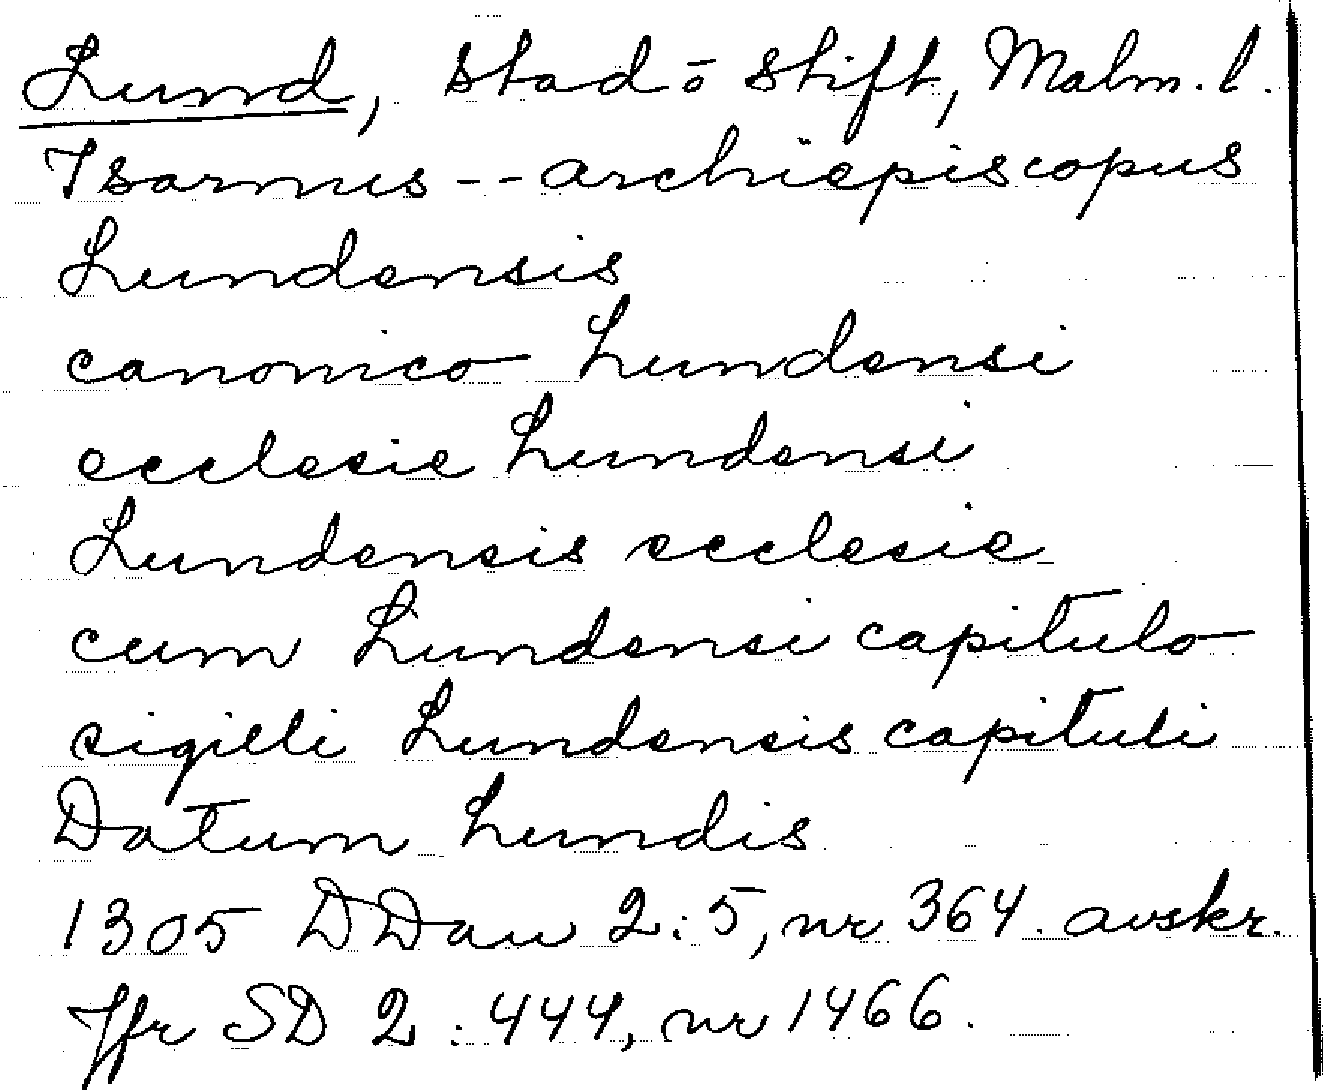 Lund, stad o stift, Malm. l.
Isarnus -- archiepiscopus
Lundensis
canonico Lundensi
ecclesie Lundensi
Lundensis ecclesie
cum Lundensi capitulo
sigilli Lundensis capituli
Datum Lundis
1305 DDan 2:5, nr 364. avskr.
Jfr SD 2:444, nr 1466.